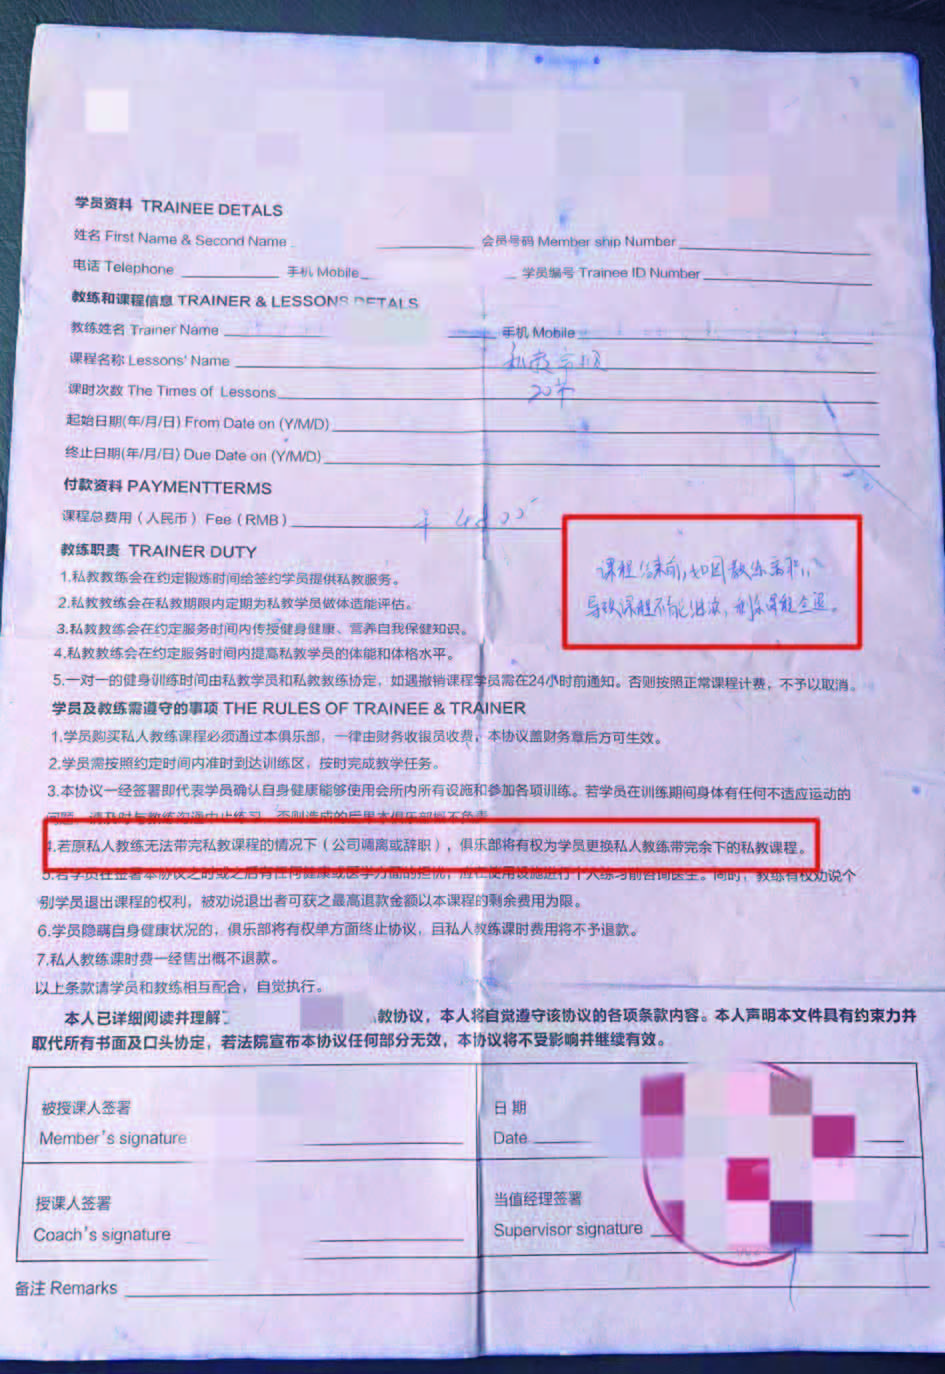 学员资料 TRAINEE DETALS
姓名 First Name & Second Name 会员号码 Member ship Number
电话 Telephone 手机 Mobile 学员编号 Trainee ID Number
教练和课程信息 TRAINER & LESSONS DETALS
教练姓名 Trainer Name 手机 Mobile
课程名称 Lessons' Name 私教
课时次数 The Times of Lessons 20节
起始日期(年/月/日) From Date on (Y/M/D)
终止日期(年/月/日) Due Date on (Y/M/D)
付款资料 PAYMENTTERMS
课程总费用（人民币）Fee (RMB)
教练职责 TRAINER DUTY
课程结束前，如因教练离职，
导致课程不能继续，剩余课程全退。
1.私教教练会在约定锻炼时间给签约学员提供私教服务。
2.私教教练会在私教期限内定期为私教学员做体适能评估。
3.私教教练会在约定服务时间内传授健身健康、营养自我保健知识。
4.私教教练会在约定服务时间内提高私教学员的体能和体格水平。
5.一对一的健身训练时间由私教学员和私教教练协定，如遇撤销课程学员需在24小时前通知。否则按照正常课程计费，不予以取消。
学员及教练需遵守的事项 THE RULES OF TRAINEE & TRAINER
1.学员购买私人教练课程必须通过本俱乐部，一律由财务收银员收费，本协议盖财务章后方可生效。
2.学员需按照约定时间内准时到达训练区，按时完成教学任务。
3.本协议一经签署即代表学员确认自身健康能够使用会所内所有设施和参加各项训练。若学员在训练期间身体有任何不适应运动的
问题，请及时与教练沟通中止练习，否则造成的后果本俱乐部概不负责。
4.若原私人教练无法带完私教课程的情况下（公司调离或辞职），俱乐部将有权为学员更换私人教练带完余下的私教课程。
5.若学员在签署本协议之时或之后有任何健康或医学方面的担忧，应在使用设施进行个人练习前咨询医生。同时，教练有权劝说个
别学员退出课程的权利，被劝说退出者可获之最高退款金额以本课程的剩余费用为限。
6.学员隐瞒自身健康状况的，俱乐部将有权单方面终止协议，且私人教练课时费用将不予退款。
7.私人教练课时费一经售出概不退款。
以上条款请学员和教练相互配合，自觉执行。
本人已详细阅读并理解 教协议，本人将自觉遵守该协议的各项条款内容。本人声明本文件具有约束力并
取代所有书面及口头协定，若法院宣布本协议任何部分无效，本协议将不受影响并继续有效。
被授课人签署 日期
Member's signature Date
授课人签署 当值经理签署
Coach's signature Supervisor signature
备注 Remarks